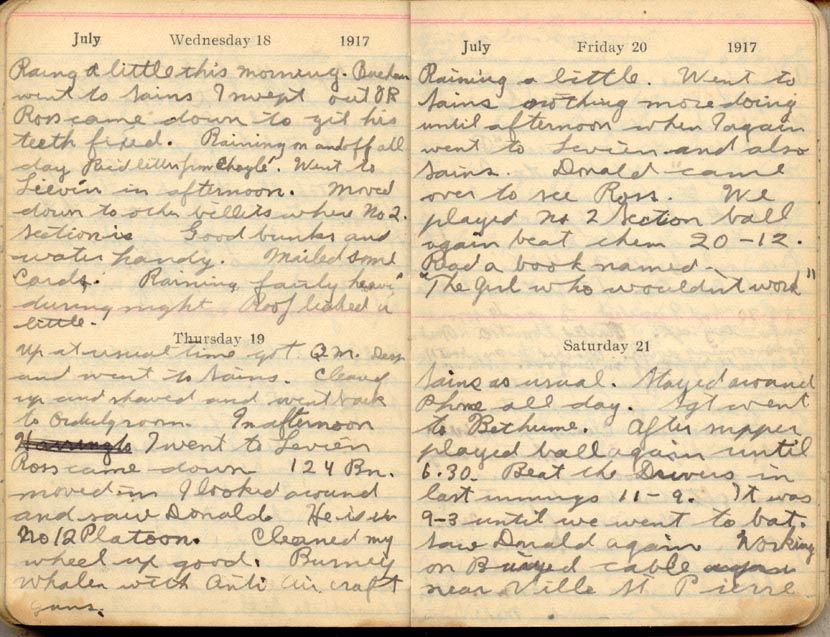 July Wednesday 18 1917
Raing a little this morning.
went to Sains I wept out OR
Ross came down to git his
teeth fixed. Raining on and off all
day Rec'd letter from Clayte. Went to
Leevin in afternoon. Moved
down to other billets where No 2.
Section is Good bunks and
water handy. Mailed some
Cards. Raining fairly heavy
during night Roof leaked a
little.
Thursday 19
Up at usual time got Q.M. Desp
and went to Sains. Cleaned
up and shaved and went back
to Orderly room. In afternoon
I went to Levien
Ross came down 124 Bn.
moved in I looked around
and saw Donald He is in
No 12 Platoon. Cleaned my
wheel up good. Burney
Whalen with Anti Air craft
guns.
July Friday 20 1917
Raining a little. Went to
Sains nothing more doing
until afternoon when I again
went to Levien and also
Sains. Donald came
over to see Ross. We
played No 2 Section ball
again beat them 20-12.
Read a book named-
"The girl who wouldn't work"
Saturday 21
Sains as usual. Stayed around
Phone all day. Sgt went
to Bethune. After supper
played ball again until
6.30. Beat the Drivers in
last innings 11-9. It was
9-3 until we went to bat.
Saw Donald again Working
on Buried cable
near Ville St Pierre